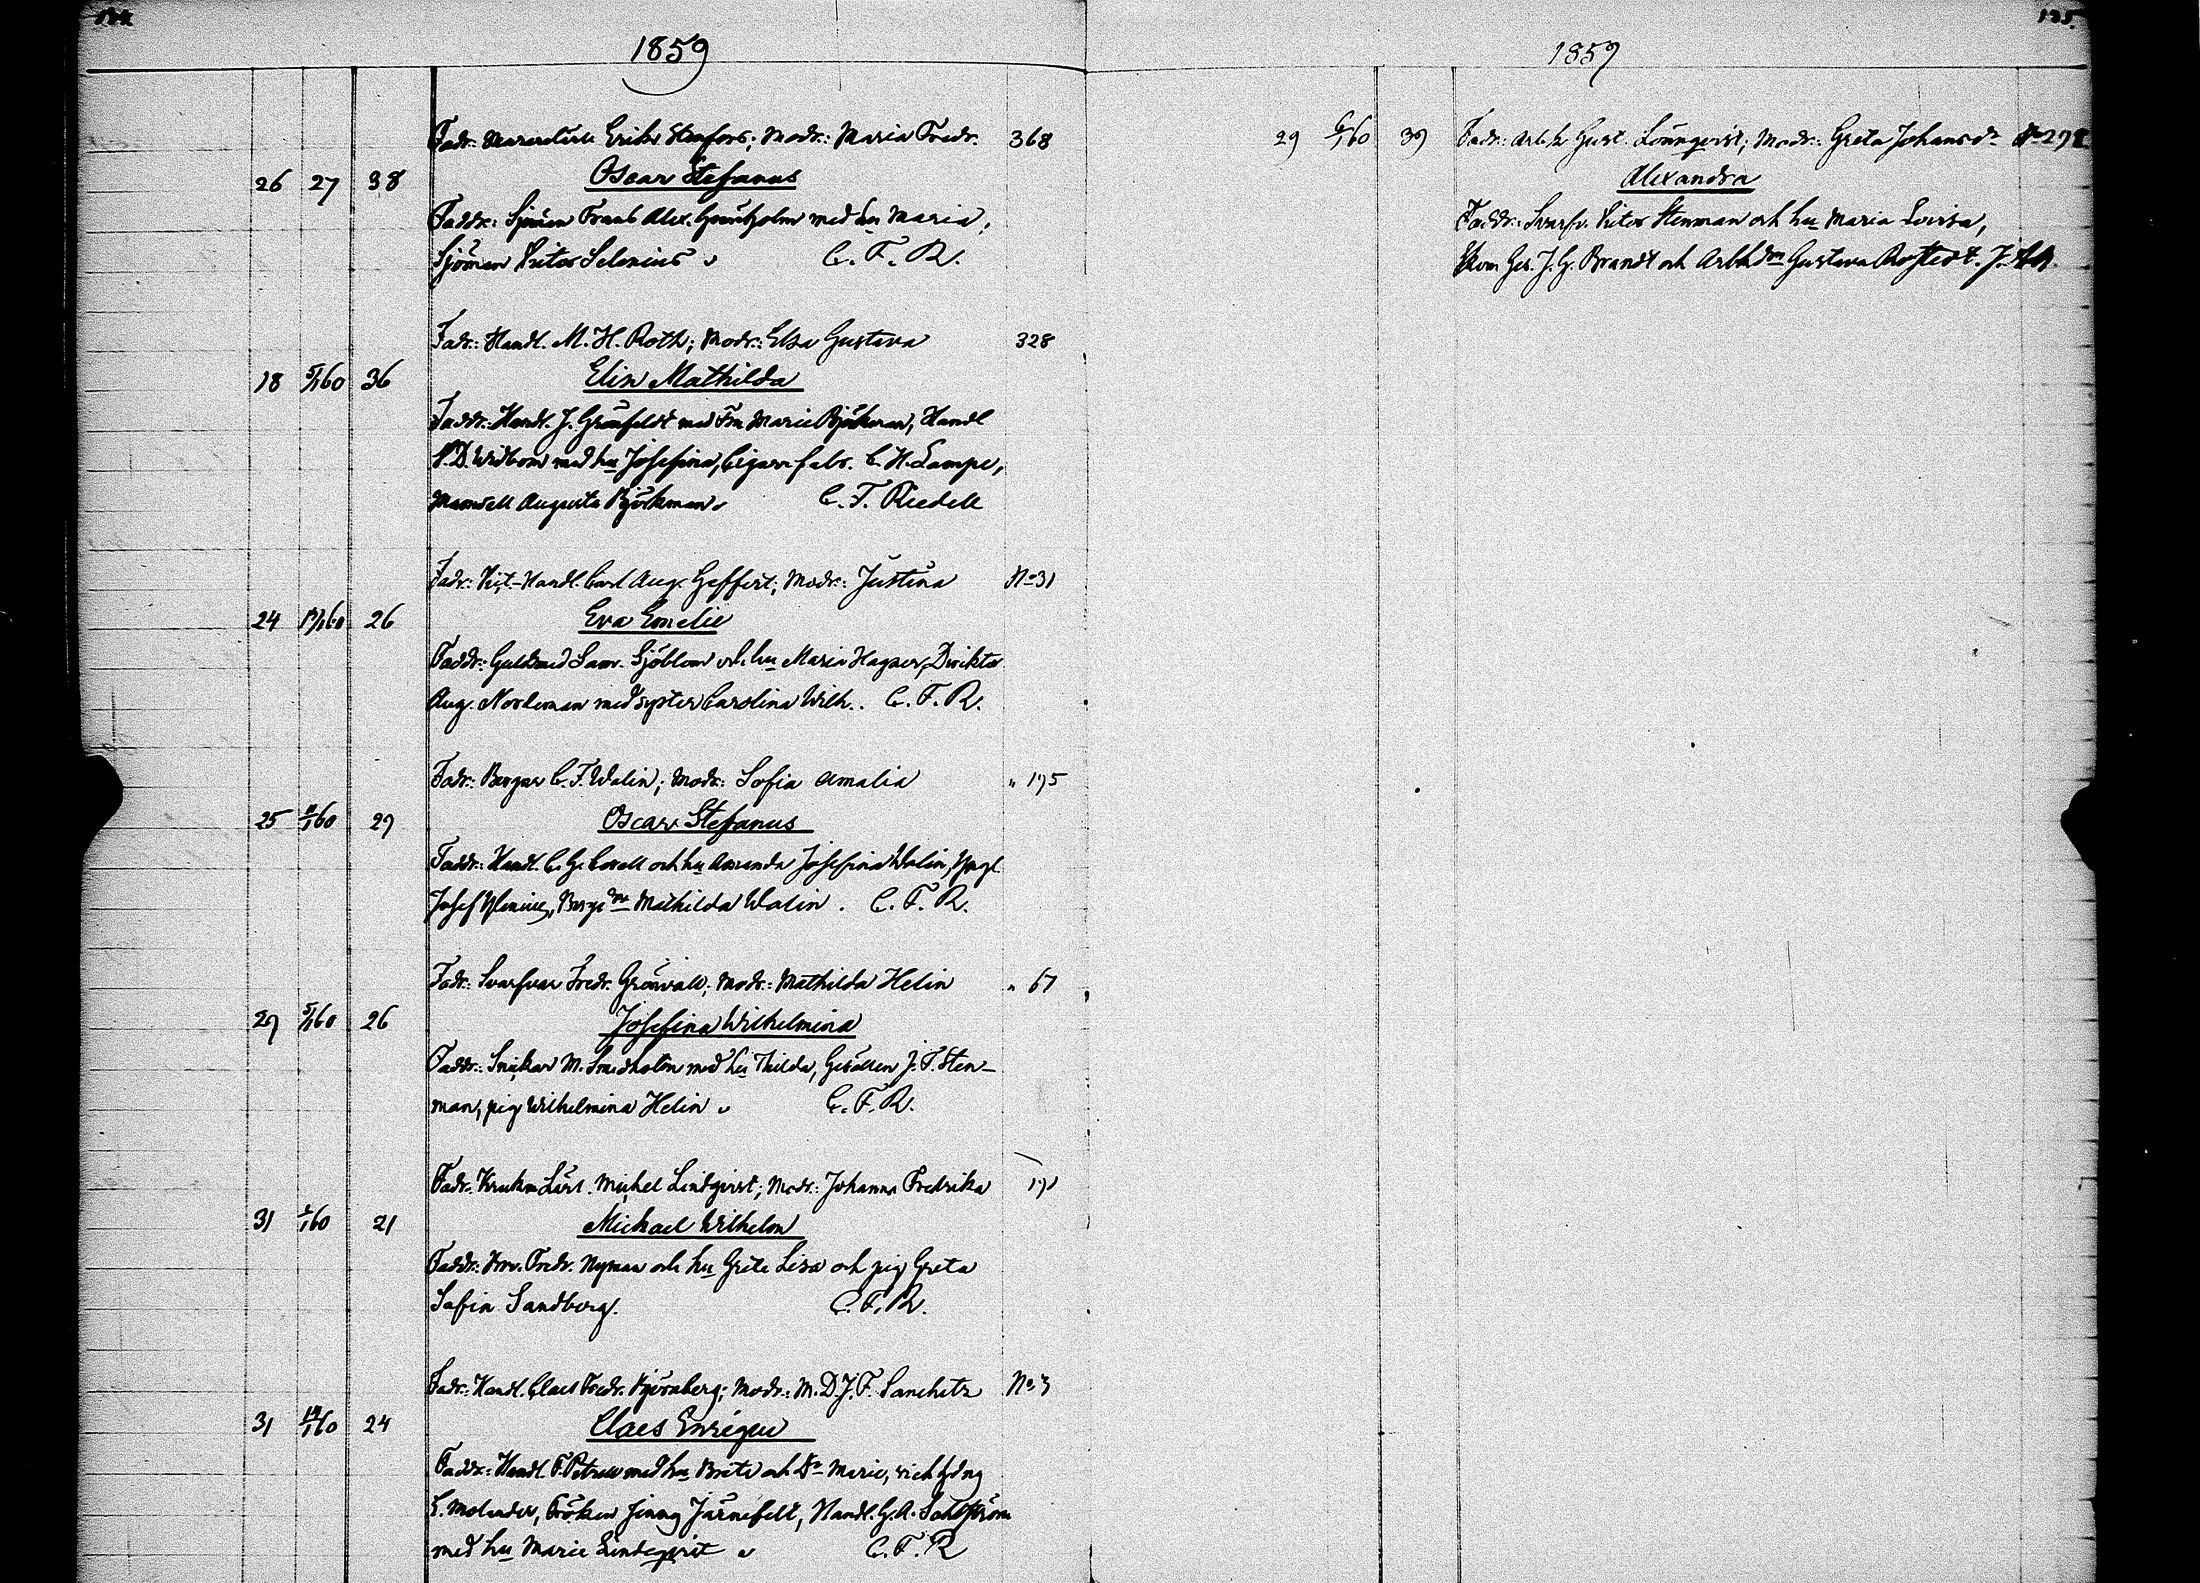 134
1859
Fadr: Erik Stenfors; Modr: Maria Fredr. 368
26 27 38 Oscar Stefanus
Faddr: Sjöman Frans Alex. Grönholm med hu Maria,
Sjöman Victor Selenius C. F. R.
Fadr: Handl. M. H. Roth; Modr: Elsa Gustava 328
18 5/1 60 36 Elin Mathilda
Faddr: Handl. J. Grönfeldt med Fru Marie Björkman, Handl
Widbom med hu Josefina, Cigarrfabr. C. H. Lampe,
Mamsell Augusta Björkman C. F. Riedell
Fadr: Vict-Handl. Carl Aug. Geffert; Modr: Justina No 31
24 60 26 Eva Emelie
Faddr: Guldsmed Sam. Sjöblom och hu Maria Hagner, Direktör
Aug. Nordeman med syster Carolina Wilh. C. F. R.
Fadr: Borgar C. F. Walin; Modr: Sofia Amalia " 175
25 60 29 Oscar Stefanus
Faddr: Handl. C. G. Corell och hu Amanda Josefina Walin, Yngl
Josef Mathilda Walin. C. F. R.
Fadr: Svarfvar Fredr. Grönvall; Modr: Mathilda Helin " 67
29 5/1 60 26 Josefina Wilhelmina
Faddr: Snickar M. Smedholm med hu Thilda, Gesällen J. F. Sten-
man, pig Wilhelmina Helin C. F. R.
Fadr: Krukm Lärl. Michel Lindqvist; Modr: Johanna Fredrika 171
31 60 21 Michael Wilhelm
Faddr: Fredr. Nyman och hu Greta Lisa och pig Greta
Sofia Sandberg. C. F. R.
Fadr: Handl. Claes Fredr. Björnberg; Modr: M. D. J. F. Sanchetz No 3
31 60 24 Claes Enrique
Faddr: Handl. F. Petrell med hu Brita och Dr Marie,
E. Molander, Fröken Jenny Järnefelt, Handl. G. A. Sahlström
med hu Marie Lindeqvist C. F. R
135
1859
29 6/1 60 39 Fadr: Arb. k Gust. Lönnqvist; Modr: Greta Johansdr No
Alexandra
Faddr: Svarfv. Victor Stenman och hu Maria Lovisa,
Skom Ges. J. G. Brandt och Gustava